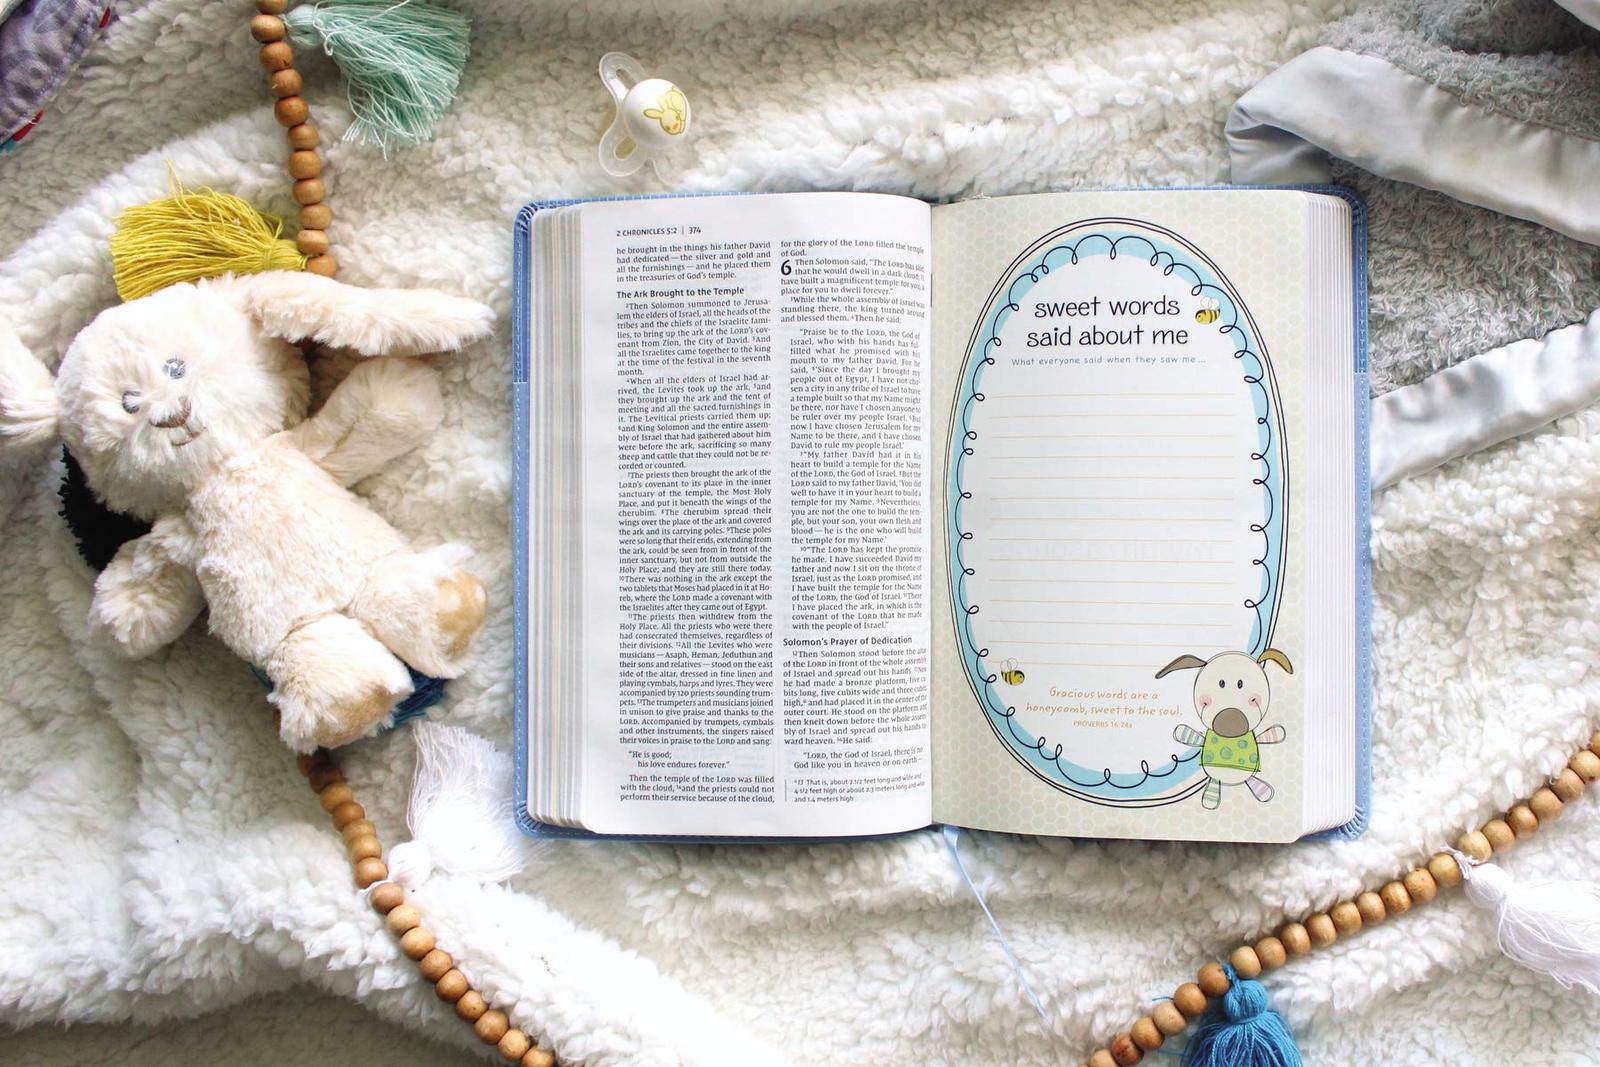 2 CHRONICLES 5:2 | 374
he brought in the things his father David
had dedicated — the silver and gold and
all the furnishings — and he placed them
in the treasuries of God's temple.
The Ark Brought to the Temple
2Then Solomon summoned to Jerusa-
lem the elders of Israel, all the heads of the
tribes and the chiefs of the Israelite fami-
lies, to bring up the ark of the LORD's cov-
enant from Zion, the City of David. 3And
all the Israelites came together to the king
at the time of the festival in the seventh
month.
4When all the elders of Israel had ar-
rived, the Levites took up the ark, 5and
they brought up the ark and the tent of
meeting and all the sacred furnishings in
it. The Levitical priests carried them up;
6and King Solomon and the entire assem-
bly of Israel that had gathered about him
were before the ark, sacrificing so many
sheep and cattle that they could not be re-
corded or counted.
7The priests then brought the ark of the
LORD's covenant to its place in the inner
sanctuary of the temple, the Most Holy
Place, and put it beneath the wings of the
cherubim. 8The cherubim spread their
wings over the place of the ark and covered
the ark and its carrying poles. 9These poles
were so long that their ends, extending from
the ark, could be seen from in front of the
inner sanctuary, but not from outside the
Holy Place; and they are still there today.
10There was nothing in the ark except the
two tablets that Moses had placed in it at Ho-
reb, where the LORD made a covenant with
the Israelites after they came out of Egypt.
11The priests then withdrew from the
Holy Place. All the priests who were there
had consecrated themselves, regardless of
their divisions. 12All the Levites who were
musicians — Asaph, Heman, Jeduthun and
their sons and relatives — stood on the east
side of the altar, dressed in fine linen and
playing cymbals, harps and lyres. They were
accompanied by 120 priests sounding trum-
pets. 13The trumpeters and musicians joined
in unison to give praise and thanks to the
LORD. Accompanied by trumpets, cymbals
and other instruments, the singers raised
their voices in praise to the LORD and sang:
"He is good;
his love endures forever."
Then the temple of the LORD was filled
with the cloud, 14and the priests could not
perform their service because of the cloud,
for the glory of the LORD filled the temple
of God.
6 Then Solomon said, "The LORD has said
that he would dwell in a dark cloud; 2I
have built a magnificent temple for you, a
place for you to dwell forever."
3While the whole assembly of Israel was
standing there, the king turned around
and blessed them. 4Then he said:
"Praise be to the LORD, the God of
Israel, who with his hands has ful-
filled what he promised with his
mouth to my father David. For he
said, 5'Since the day I brought my
people out of Egypt, I have not cho-
sen a city in any tribe of Israel to have
a temple built so that my Name might
be there, nor have I chosen anyone to
be ruler over my people Israel. 6But
now I have chosen Jerusalem for my
Name to be there, and I have chosen
David to rule my people Israel.'
7"My father David had it in his
heart to build a temple for the Name
of the LORD, the God of Israel. 8But the
LORD said to my father David, 'You did
well to have it in your heart to build a
temple for my Name. 9Nevertheless,
you are not the one to build the tem-
ple, but your son, your own flesh and
blood — he is the one who will build
the temple for my Name.'
10"The LORD has kept the promise
he made. I have succeeded David my
father and now I sit on the throne of
Israel, just as the LORD promised, and
I have built the temple for the Name
of the LORD, the God of Israel. 11There
I have placed the ark, in which is the
covenant of the LORD that he made
with the people of Israel."
Solomon's Prayer of Dedication
12Then Solomon stood before the altar
of the LORD in front of the whole assembly
of Israel and spread out his hands. 13Now
he had made a bronze platform, five cu-
bits long, five cubits wide and three cubits
high,a and had placed it in the center of the
outer court. He stood on the platform and
then knelt down before the whole assem-
bly of Israel and spread out his hands to-
ward heaven. 14He said:
"LORD, the God of Israel, there is no
God like you in heaven or on earth —
a 13 That is, about 7 1/2 feet long and wide and
4 1/2 feet high or about 2.3 meters long and wide
and 1.4 meters high
sweet words
said about me
What everyone said when they saw me...
Gracious words are a
honeycomb, sweet to the soul.
PROVERBS 16:24a